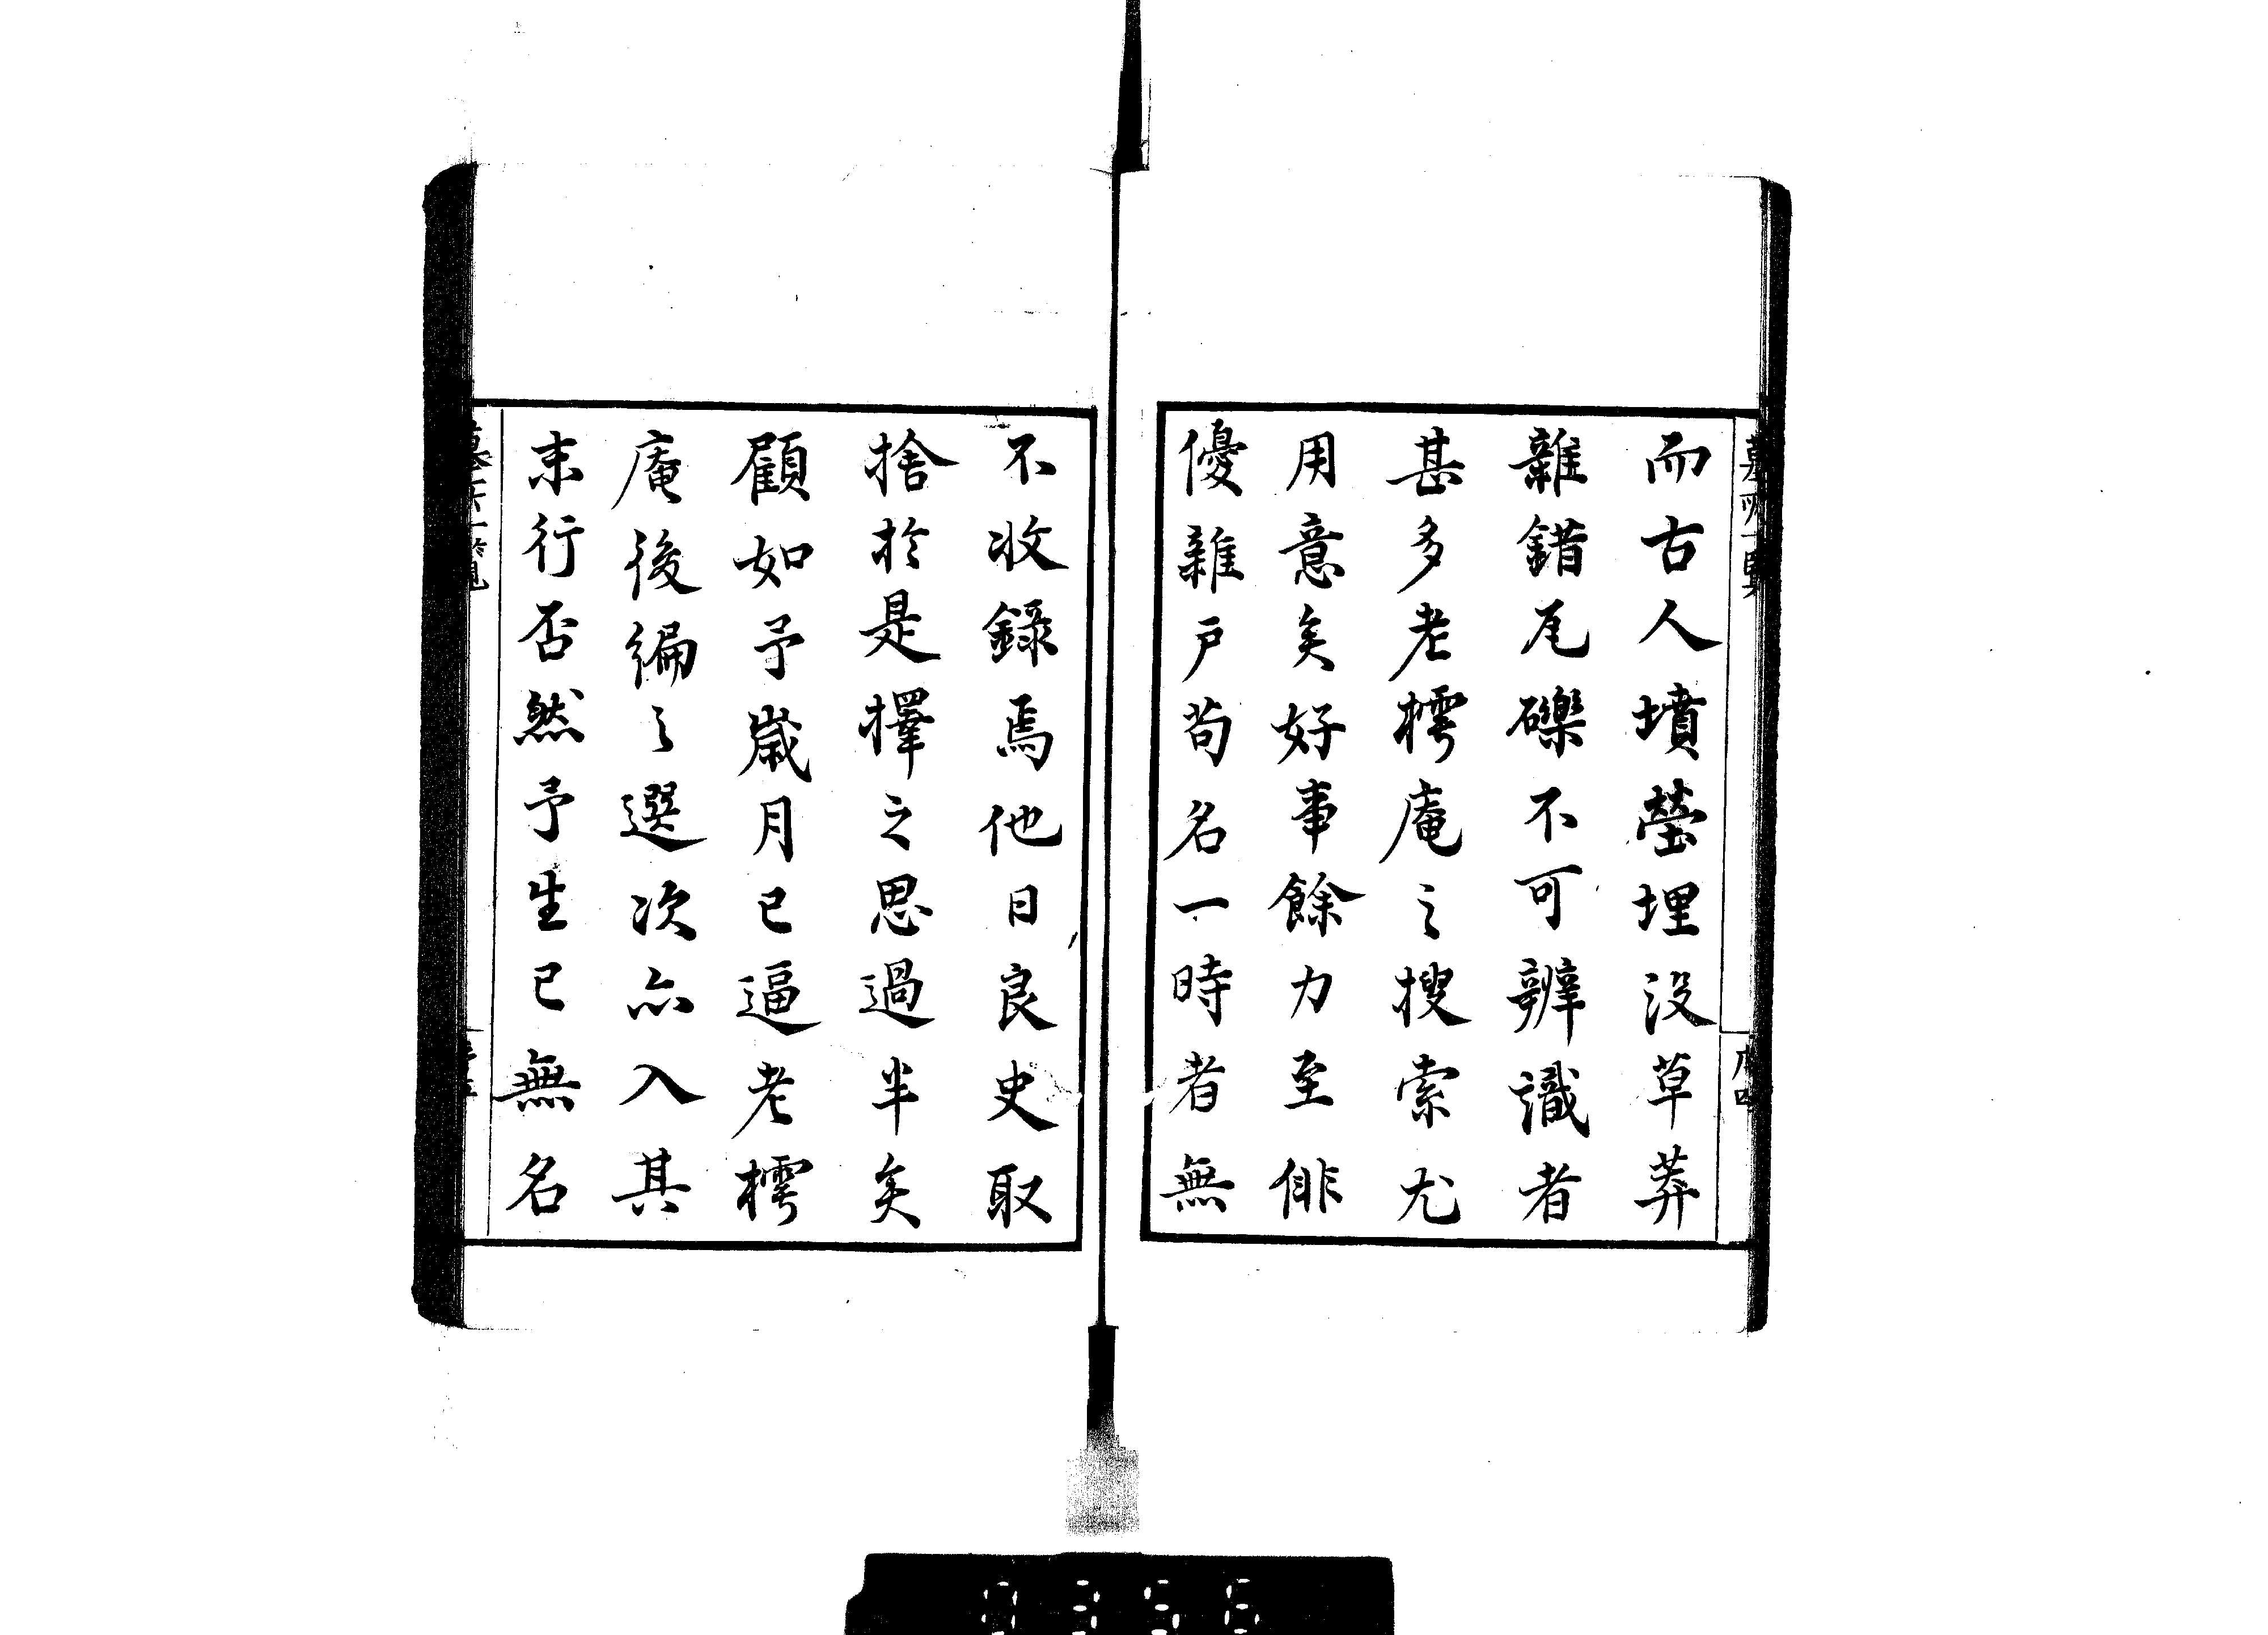 而古人墳塋埋没草莽
雜錯瓦礫不可辨識者
甚多老樗庵之搜索尤
用意矣好事餘力至俳
優雜戸苟名一時者無
不收錄焉他日良史取
捨於是擇之思過半矣
顧如予歳月已逼老樗
庵後編之選次亦入其
末行否然予生已無名